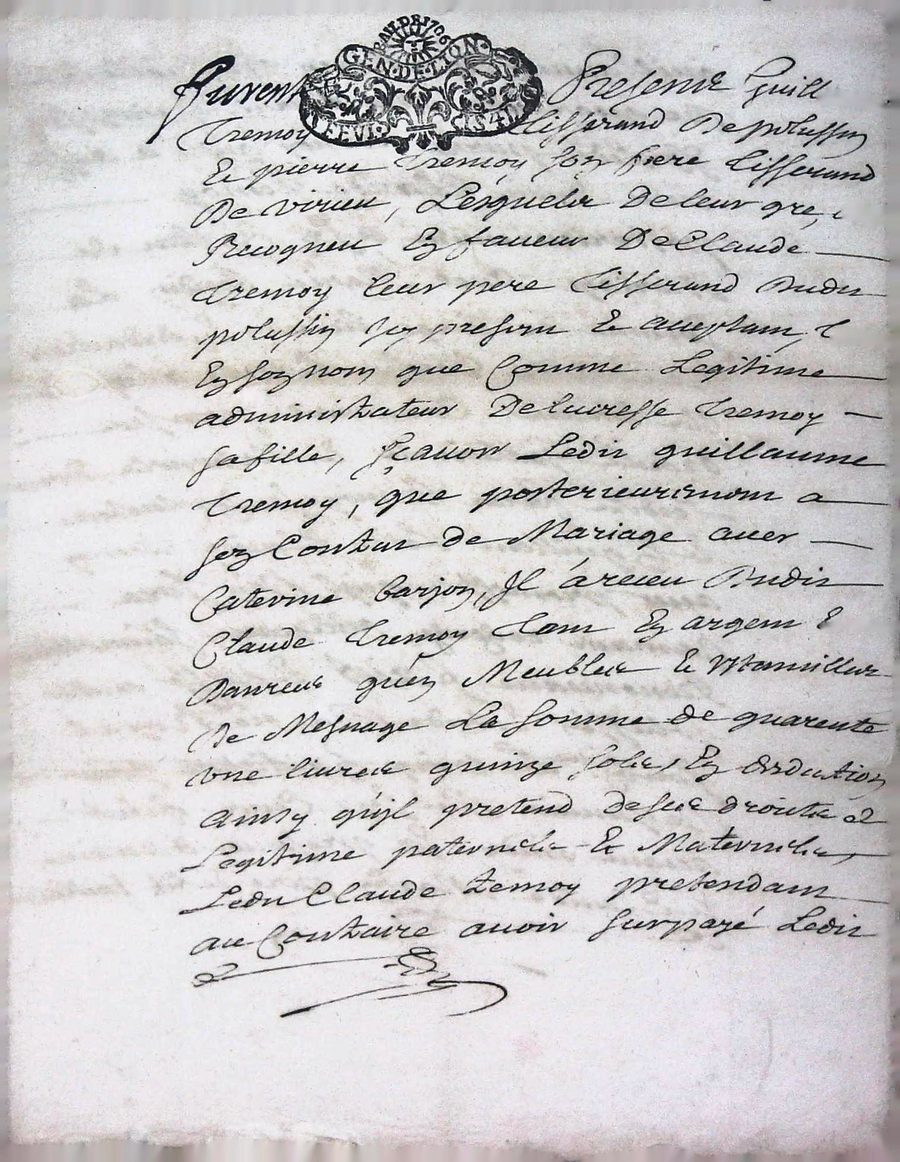 BAIL DE 1706
GEN·DE·LION
Furent Presens Guill
Tremoy Tisserand De polussin
Et pierre Tremoy son frere Tisserand
De virieu, Lesquels De leur gre,
Recogneu En faueur De Claude
Tremoy leur pere Tisserand Dudit
polussin Icy present Et aceptant,
En son nom que Comme Legitime
administrateur De lucresse Tremoy
sa fille, sçauoir Ledit guillaume
Tremoy, que posterieurement a
son Contrat de Mariage auec
Caterine barjon, Il a receu Dudit
Claude Tremoy Tant En argent
Danrees qu'en Meubles Et Vttancilles
De Mesnage La somme de quarente
vne liures quinze sols, En deduction
ainsy qu'il pretend de ses droits
Legitime paternels Et Maternels,
Ledit Claude Temoy pretendant
au Contraire auoir surpayé Ledit